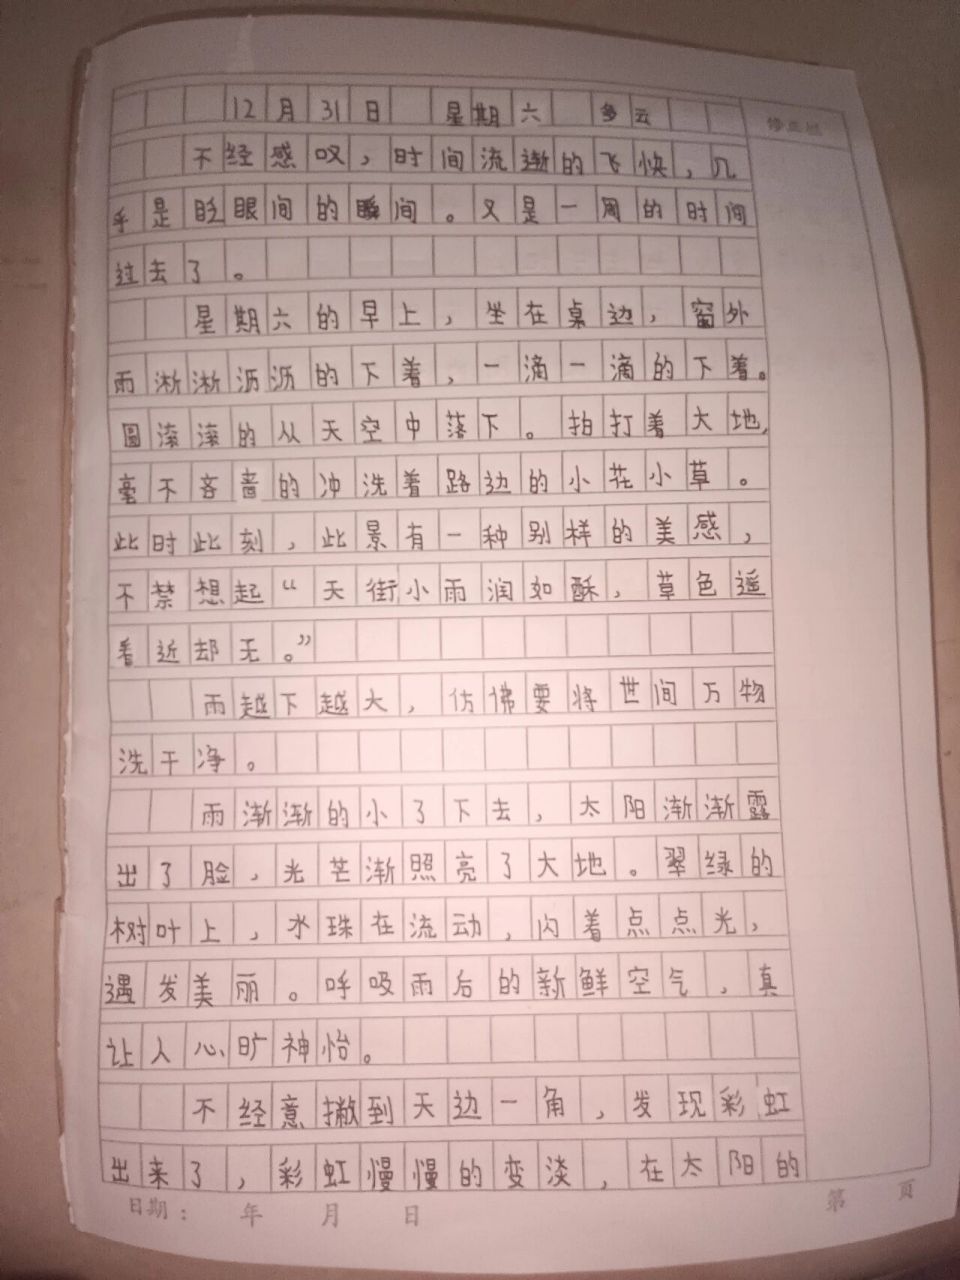 12月31日 星期六 多云
不经感叹，时间流逝的飞快，几
乎是眨眼间的瞬间。又是一周的时间
过去了。
星期六的早上，坐在桌边，窗外
雨淅淅沥沥的下着，一滴一滴的下着。
圆滚滚的从天空中落下。拍打着大地，
毫不吝啬的冲洗着路边的小花小草。
此时此刻，此景有一种别样的美感，
不禁想起“天街小雨润如酥，草色遥
看近却无。”
雨越下越大，仿佛要将世间万物
洗干净。
雨渐渐的小了下去，太阳渐渐露
出了脸，光芒渐照亮了大地。翠绿的
树叶上，水珠在流动，闪着点点光，
遇发美丽。呼吸雨后的新鲜空气，真
让人心旷神怡。
不经意撇到天边一角，发现彩虹
出来了，彩虹慢慢的变淡，在太阳的
日期： 年 月 日
第 页